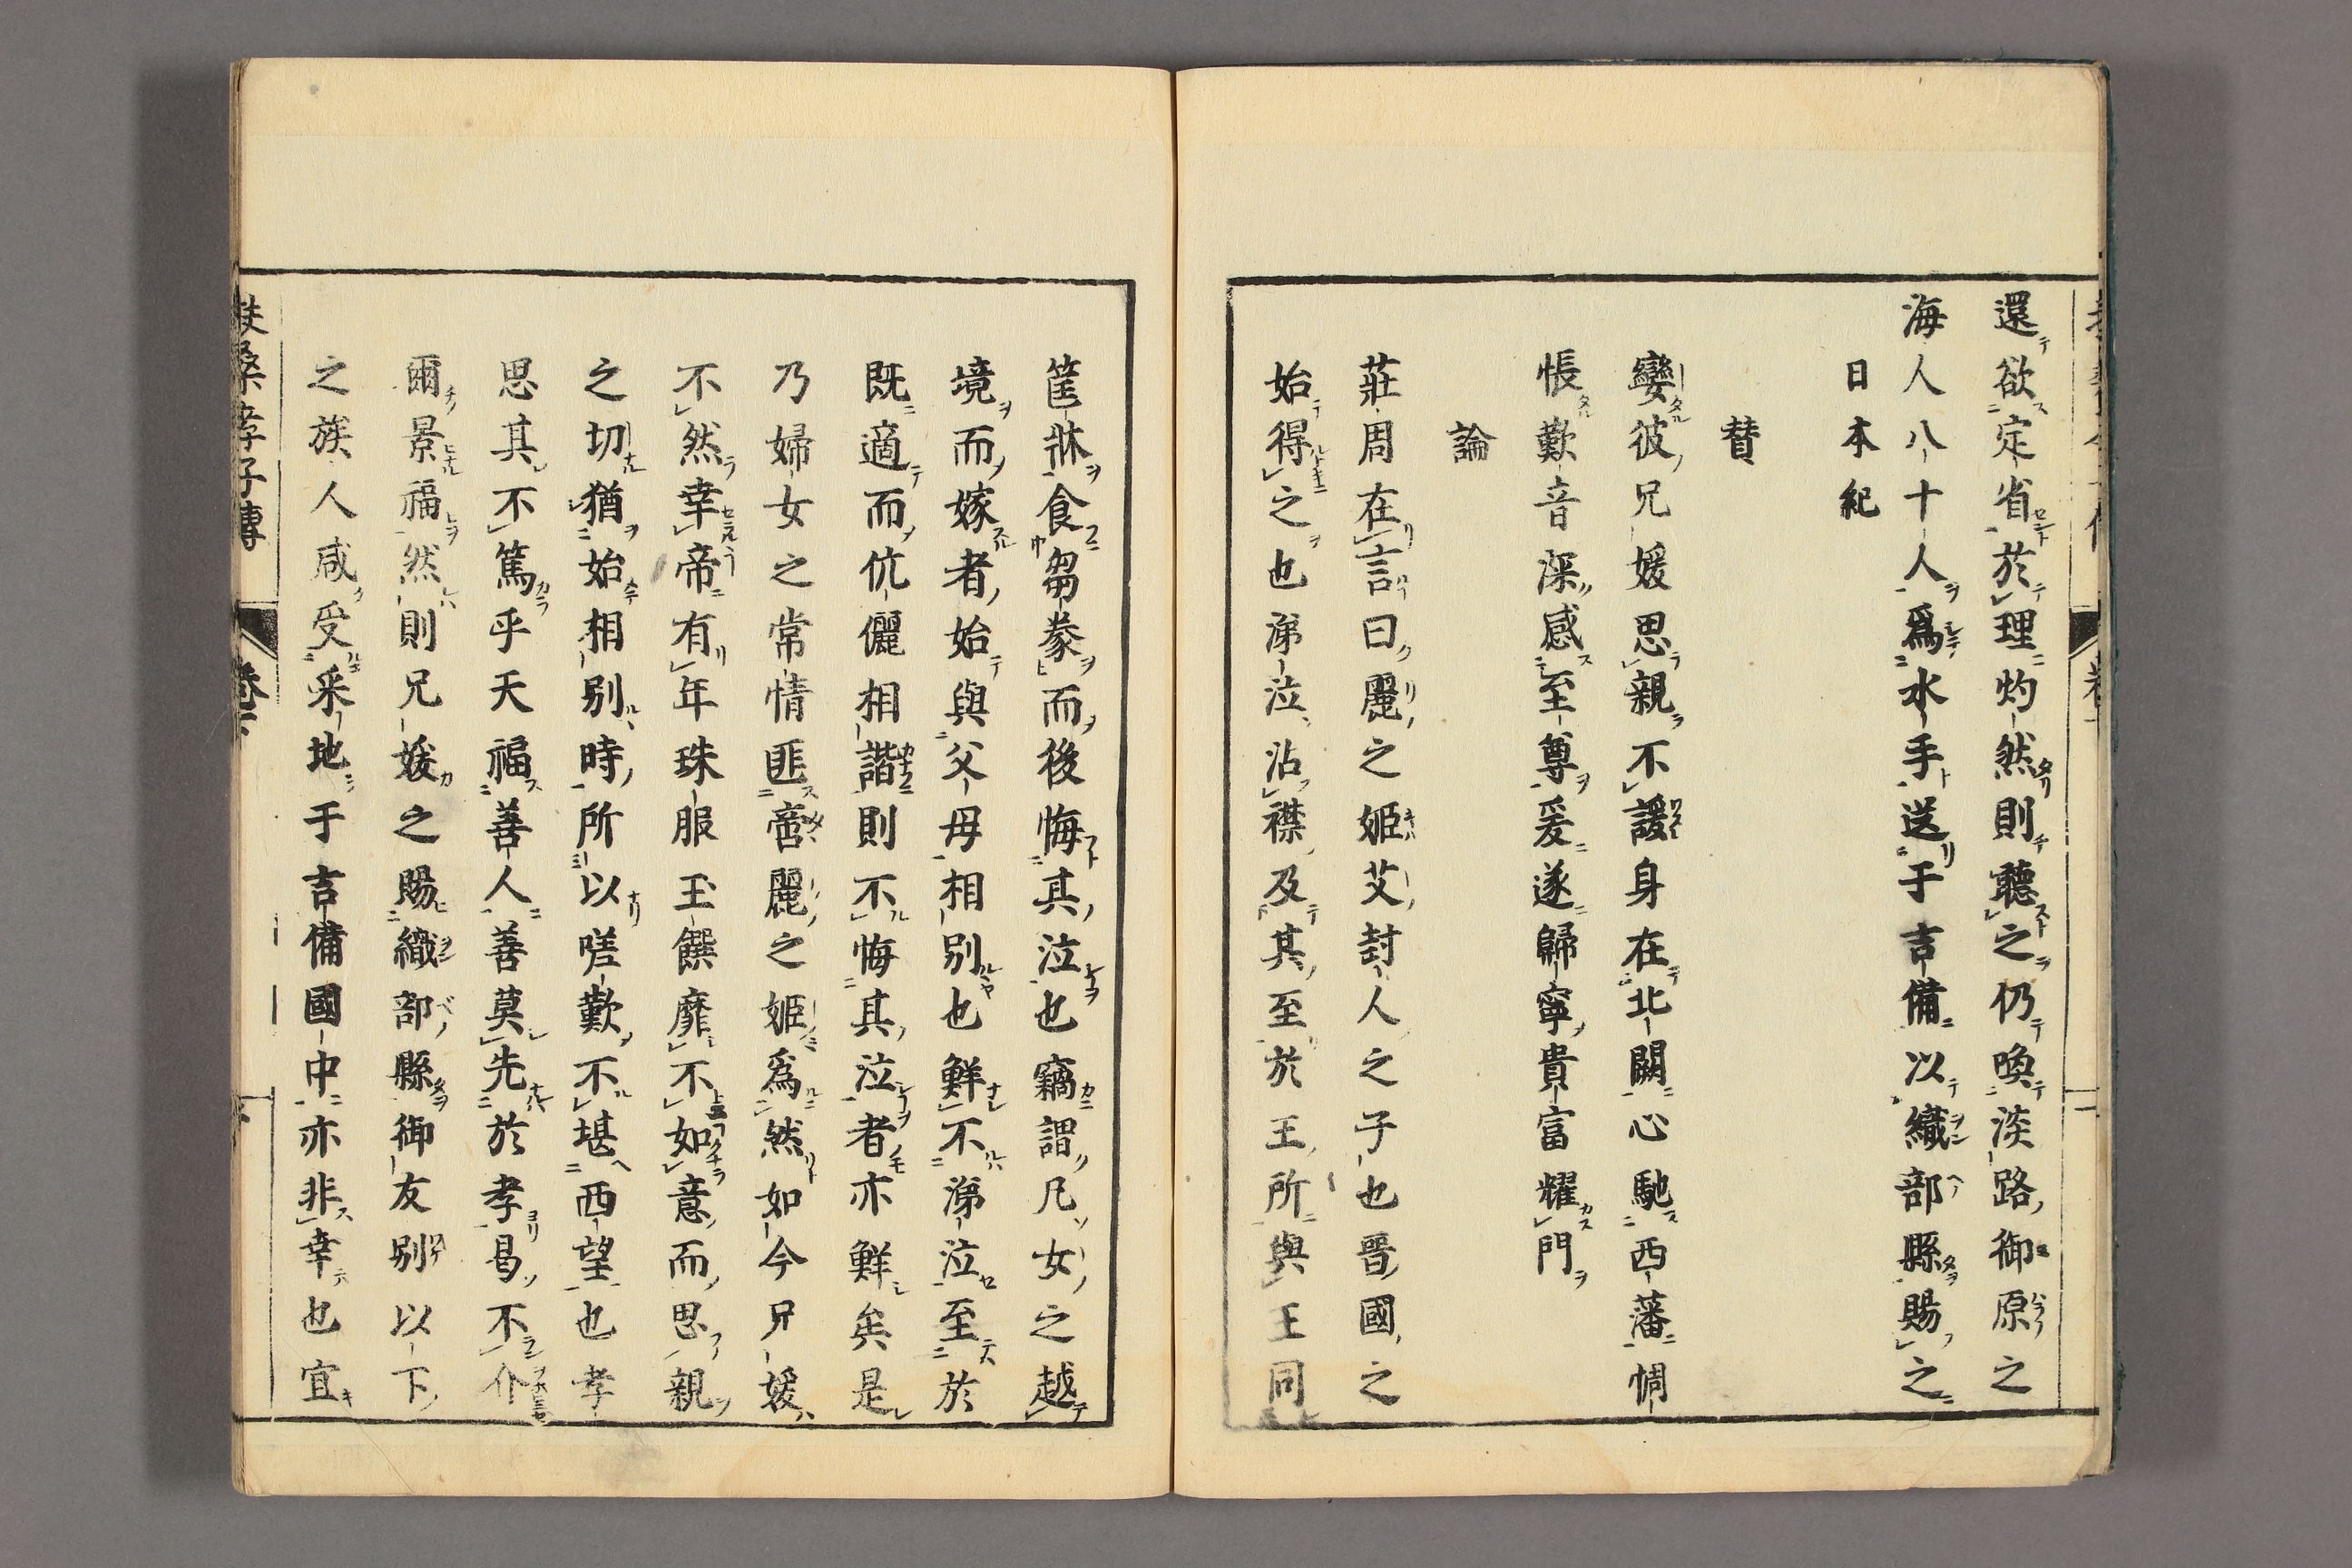 還欲定省於理灼然則聽之仍喚淡路御原之
海人八十人爲水手送于吉備以織部縣賜之
日本紀
賛
孌彼兄媛思親不諼身在北闕心馳西藩惆
悵歎音深感至尊爰遂歸寧貴富耀門
論
莊周在言曰麗之姬艾封人之子也晋國之
始得之也涕泣沾襟及其至於王所與王同
筐牀食芻豢而後悔其泣也竊謂凡女之越
境而嫁者始與父母相別也鮮不涕泣至於
既適而伉儷相諧則不悔其泣者亦鮮矣是
乃婦女之常情匪啻麗之姬爲然如今兄媛
不然幸帝有年珠服玉饌靡不如意而思親
之切猶始相別時所以嗟歎不堪西望也孝
思其不篤乎天福善人善莫先於孝曷不介
爾景福然則兄媛之賜織部縣御友別以下
之族人咸受采地于吉備國中亦非幸也宜
扶桑孝子傳
卷下